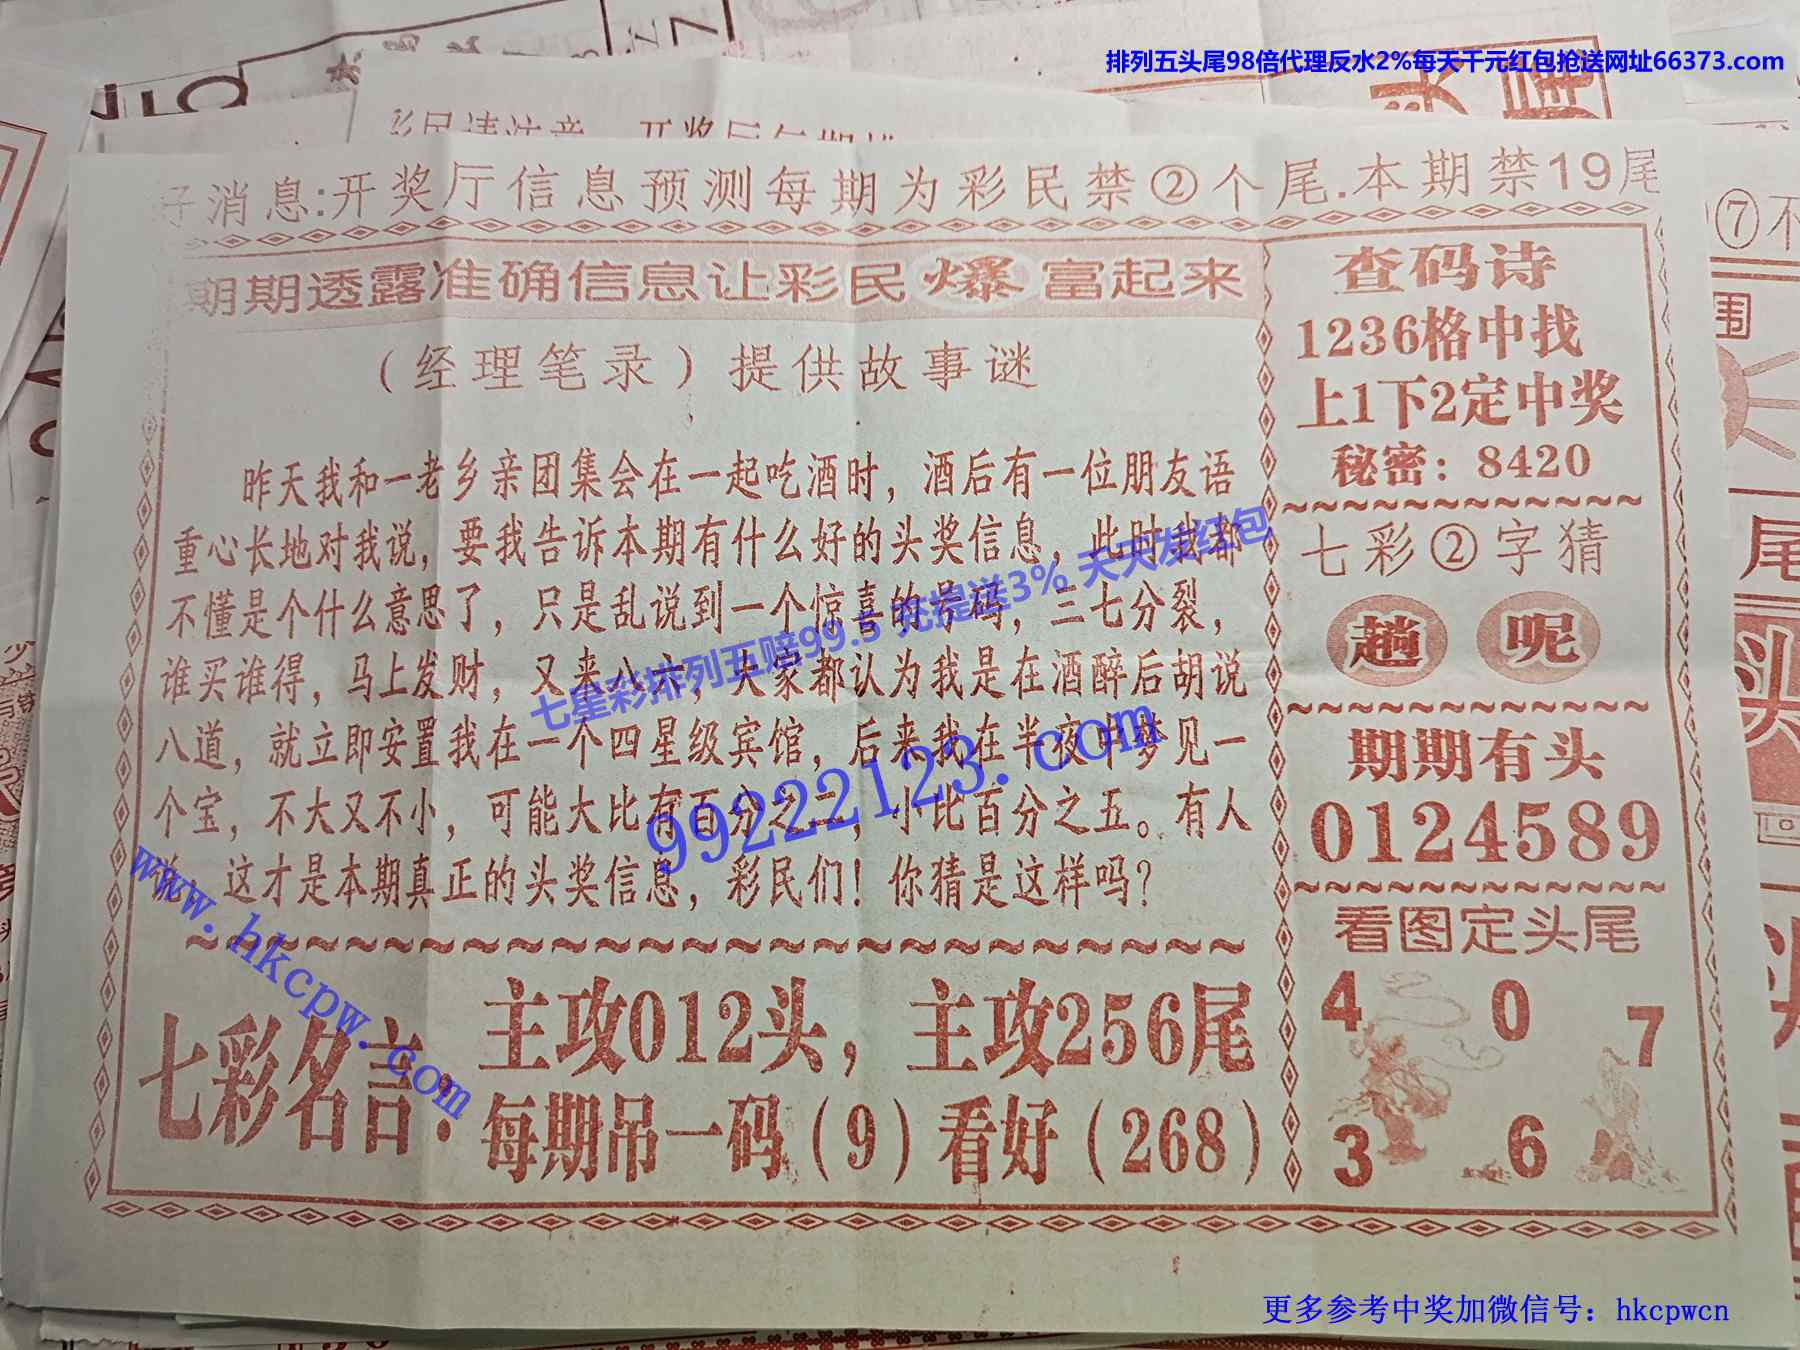 排列五头尾98倍代理反水2%每天千元红包抢送网址66373.com
好消息:开奖厅信息预测每期为彩民禁②个尾.本期禁19尾
期期透露准确信息让彩民爆富起来
（经理笔录）提供故事谜
昨天我和一老乡亲团集会在一起吃酒时，酒后有一位朋友语
重心长地对我说，要我告诉本期有什么好的头奖信息，此时我都
不懂是个什么意思了，只是乱说到一个惊喜的号码，三七分裂，
谁买谁得，马上发财，又来八六，大家都认为我是在酒醉后胡说
八道，就立即安置我在一个四星级宾馆，后来我在半夜中梦见一
个宝，不大又不小，可能大比有百分之二，小比百分之五。有人
说，这才是本期真正的头奖信息，彩民们！你猜是这样吗？
七彩名言：
主攻012头，主攻256尾
每期吊一码（9）看好（268）
查码诗
1236格中找
上1下2定中奖
秘密：8420
七彩②字猜
趟 呢
期期有头
0124589
看图定头尾
4 0 7
3 6
七星彩排列五赔99.5 充提送3% 天天发红包
99222123.com
www.hkcpw.com
⑦不
围
尾
头
更多参考中奖加微信号：hkcpwcn